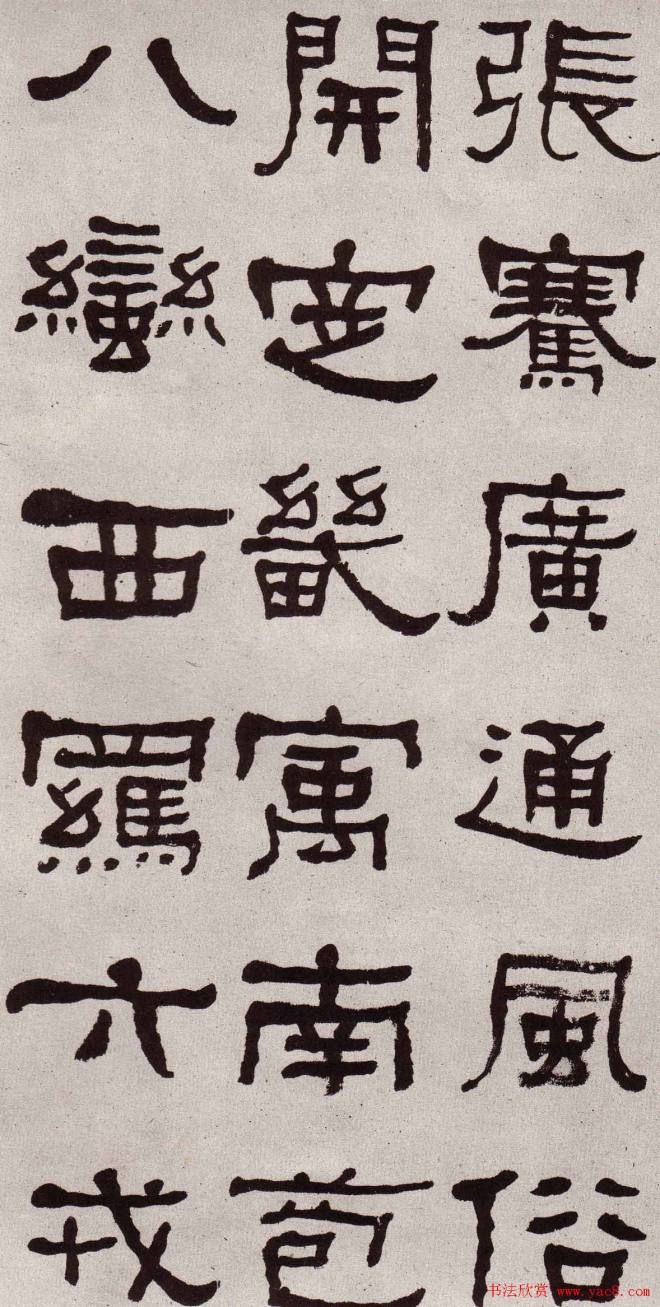 張騫廣通風俗
開定畿寓南苞
八蠻西羅六戎
书法欣赏 www.yac8.com